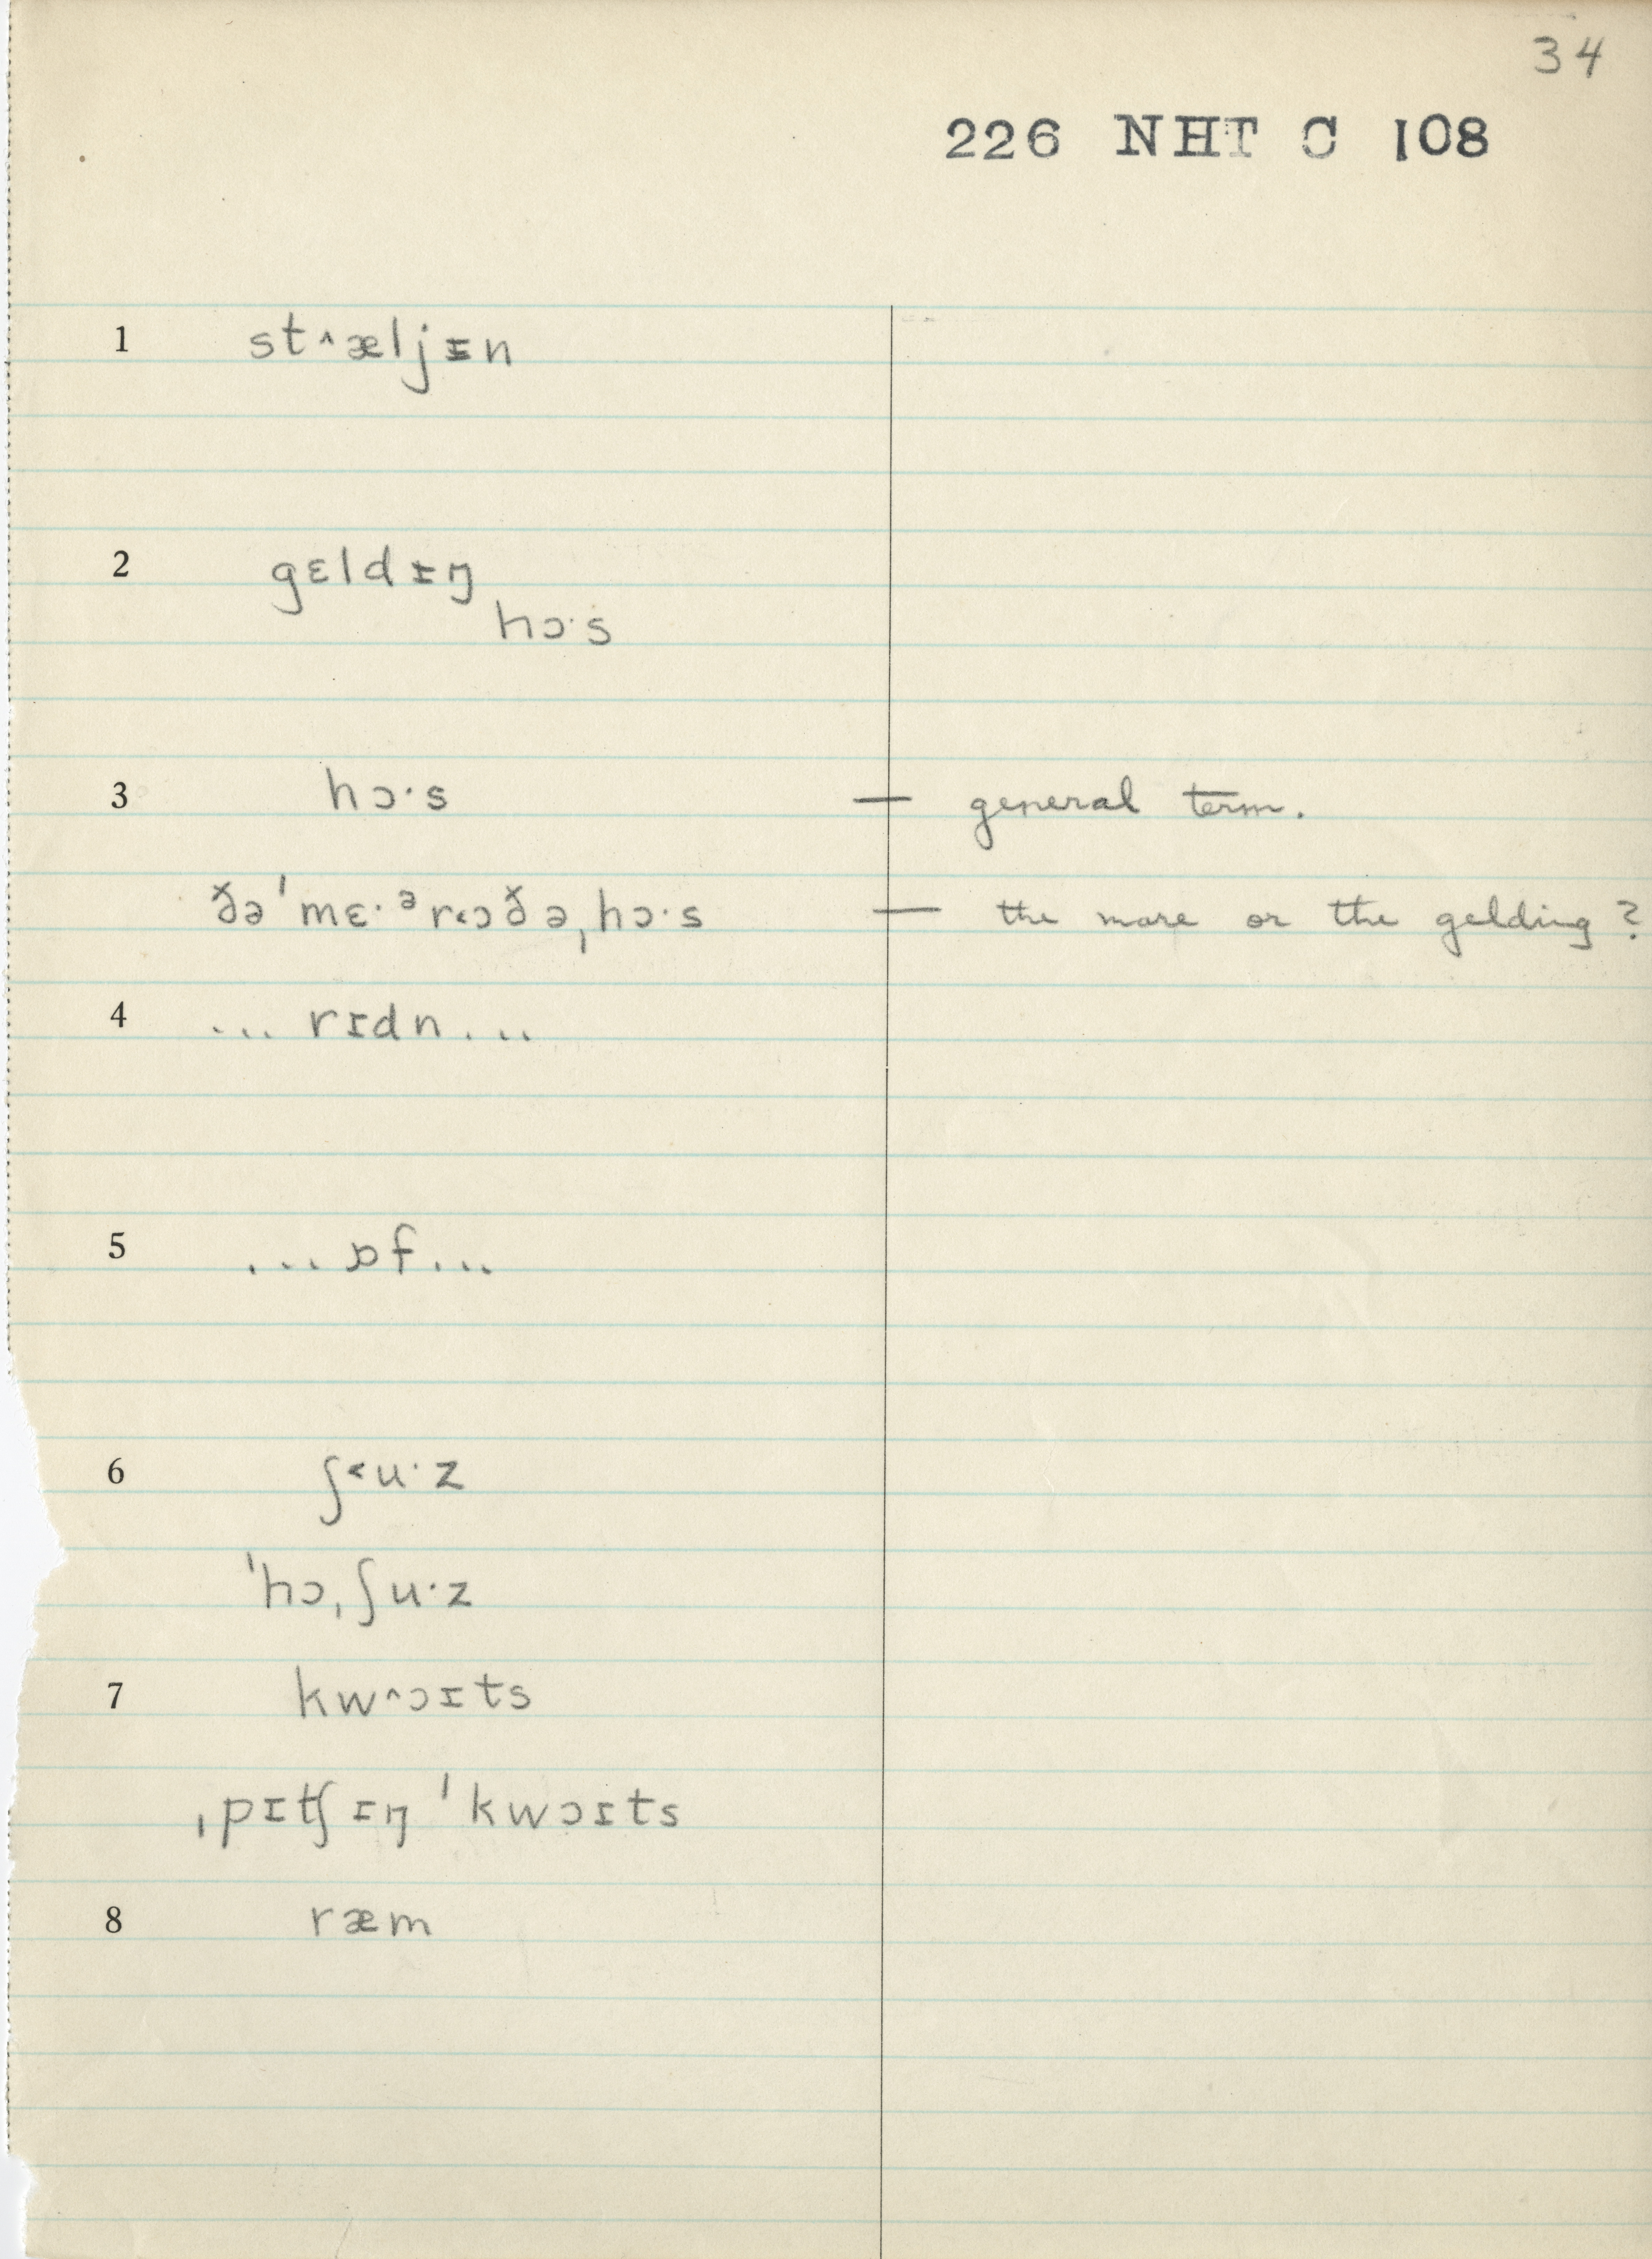 34
226 NHT C 108
1 st˄æljᵻn
2 gɛldᵻŋ
hɔ·s
3 hɔ·s — general term.
ðə'mɛ·ᵊr˂ɔðəˌhɔ·s — the mare or the gelding?
4 ... rɪdn ...
5 ... ɒf ...
6 ʃ˂u·z
'hɔˌʃu·z
7 kw˄ɔɪts
ˌpɪtʃɪŋ 'kwɔɪts
8 ræm